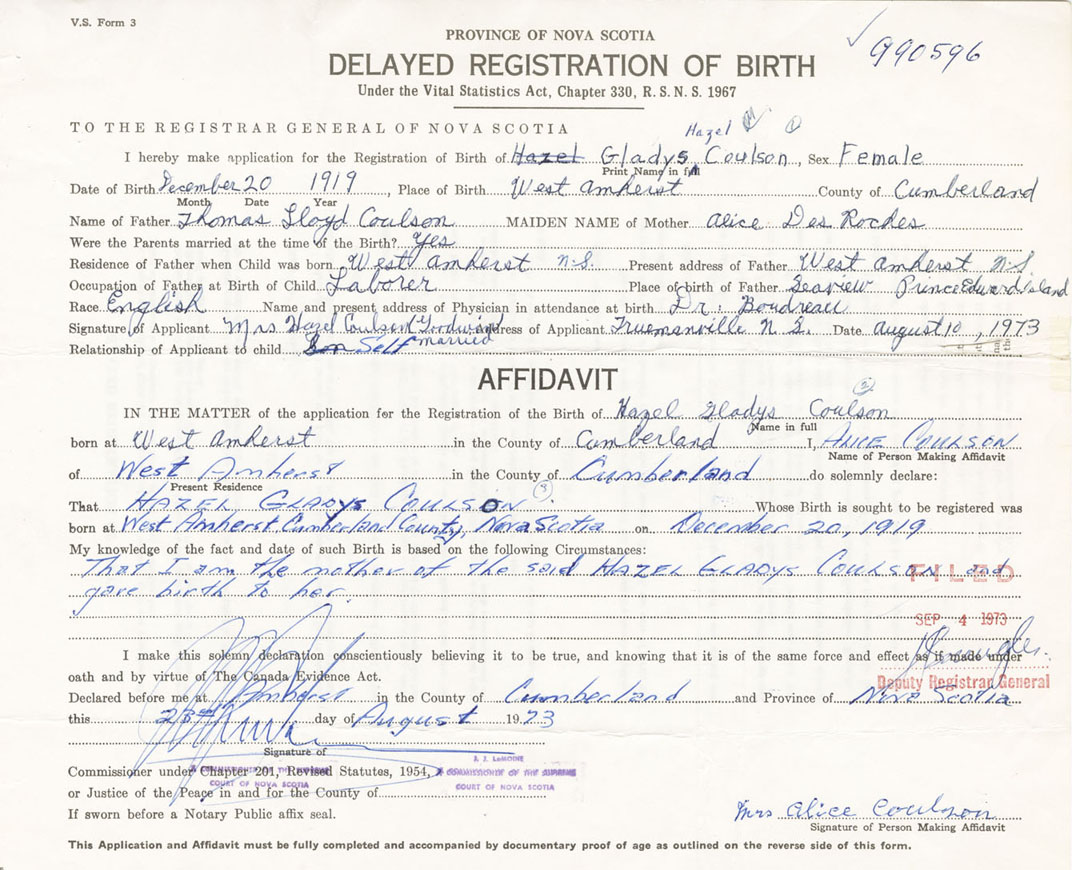 V.S. Form 3
PROVINCE OF NOVA SCOTIA
990596
DELAYED REGISTRATION OF BIRTH
Under the Vital Statistics Act, Chapter 330, R. S. N. S. 1967
TO THE REGISTRAR GENERAL OF NOVA SCOTIA
Hazel
I hereby make application for the Registration of Birth of Hazel Gladys Coulson, Sex Female
Print Name in full
Date of Birth December 20 1919, Place of Birth West Amherst County of Cumberland
Month Date Year
Name of Father Thomas Lloyd Coulson MAIDEN NAME of Mother Alice Des Roches
Were the Parents married at the time of the Birth? Yes
Residence of Father when Child was born West Amherst N.S. Present address of Father West Amherst N.S.
Occupation of Father at Birth of Child Laborer Place of birth of Father Seaview Prince Edward Island
Race English Name and present address of Physician in attendance at birth Dr. Boudreau
Signature of Applicant Mrs Hazel Coulson Goodwin Address of Applicant Truemanville N.S. Date August 10, 1973
married
Relationship of Applicant to child Son Self
AFFIDAVIT
2
IN THE MATTER of the application for the Registration of the Birth of Hazel Gladys Coulson
Name in full
born at West Amherst in the County of Cumberland I, ALICE COULSON
Name of Person Making Affidavit
of West Amherst in the County of Cumberland do solemnly declare:
Present Residence
That HAZEL GLADYS COULSON 3 Whose Birth is sought to be registered was
born at West Amherst Cumberland County, Nova Scotia on December 20, 1919
My knowledge of the fact and date of such Birth is based on the following Circumstances:
That I am the mother of the said HAZEL GLADYS COULSON and
gave birth to her.
FILED
SEP 4 1973
I make this solemn declaration conscientiously believing it to be true, and knowing that it is of the same force and effect as if made under
oath and by virtue of The Canada Evidence Act.
Deputy Registrar General
Declared before me at Amherst in the County of Cumberland and Province of Nova Scotia
this day of August 1973
Signature of
Commissioner under Chapter 201, Revised Statutes, 1954,
J. J. LeMOINE
A COMMISSIONER OF THE SUPREME
COURT OF NOVA SCOTIA
A COMMISSIONER OF THE SUPREME
COURT OF NOVA SCOTIA
or Justice of the Peace in and for the County of
If sworn before a Notary Public affix seal.
Mrs Alice Coulson
Signature of Person Making Affidavit
This Application and Affidavit must be fully completed and accompanied by documentary proof of age as outlined on the reverse side of this form.